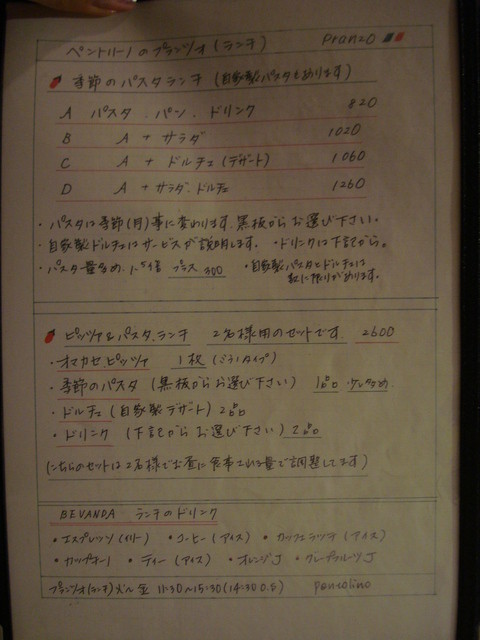 ペントリーノのプランツォ(ランチ) Pranzo
季節のパスタランチ (自家製パスタもあります)
A パスタ.パン.ドリンク 820
B A + サラダ 1020
C A + ドルチェ(デザート) 1060
D A + サラダ.ドルチェ 1260
・パスタは季節(月)事に変わります.黒板からお選び下さい。
・自家製ドルチェはサービスが説明します。 ・ドリンクは下記から。
・パスタ量多め.1.5倍 プラス 300 ・自家製パスタとドルチェは
数に限りがあります。
ピッツァ&パスタ.ランチ 2名様用のセットです. 2600
・オマカセピッツァ 1枚 (ミラノタイプ)
・季節のパスタ (黒板からお選び下さい) 1皿 少し多め.
・ドルチェ (自家製デザート) 2皿
・ドリンク (下記からお選び下さい)
(こちらのセットは2名様でお昼に食事される量で調整してます)
BEVANDA ランチのドリンク
・エスプレッソ(イリー) ・コーヒー(アイス) ・カフェラッテ(アイス)
・カップチーノ ・ティー(アイス) ・オレンジJ ・グレープフルーツJ
プランツォ(ランチ) 火〜金 11:30〜15:30(14:30 O.S) Pentolino